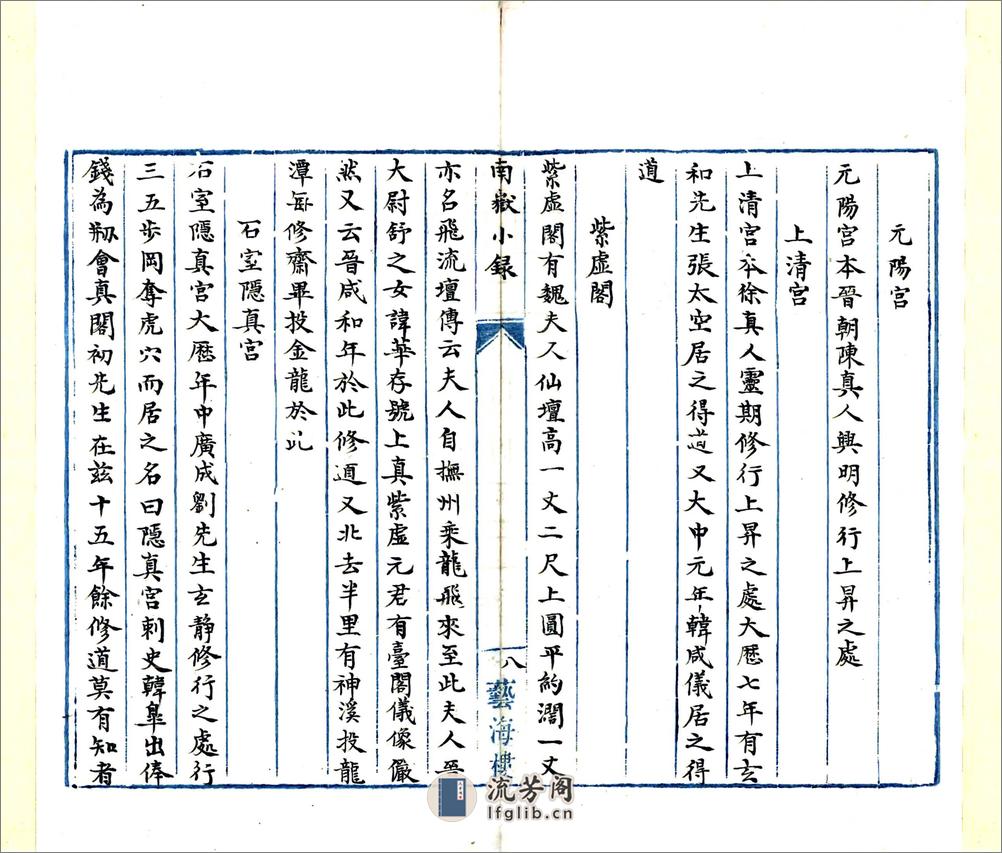 元陽宫
元陽宫本晉朝陳真人興明修行上昇之處
上清宫
上清宫本徐真人靈期修行上昇之處大歷七年有玄
和先生張太空居之得道又大中元年韓咸儀居之得
道
紫虚閣
紫虚閣有魏夫人仙壇高一丈二尺上圓平約濶一丈
南嶽小録
八
藝海樓
亦名飛流壇傳云夫人自撫州乘龍飛來至此夫人晉
大尉舒之女諱華存號上真紫虚元君有臺閣儀像儼
然又云晉咸和年於此修道又北去半里有神溪投龍
潭每修齋畢投金龍於此
石室隱真宫
石室隱真宫大歷年中廣成劉先生玄静修行之處行
三五步岡奪虎穴而居之名曰隱真宫刺史韓臯出俸
錢為剏會真閣初先生在兹十五年餘修道莫有知者
流芳阁
lfglib.cn